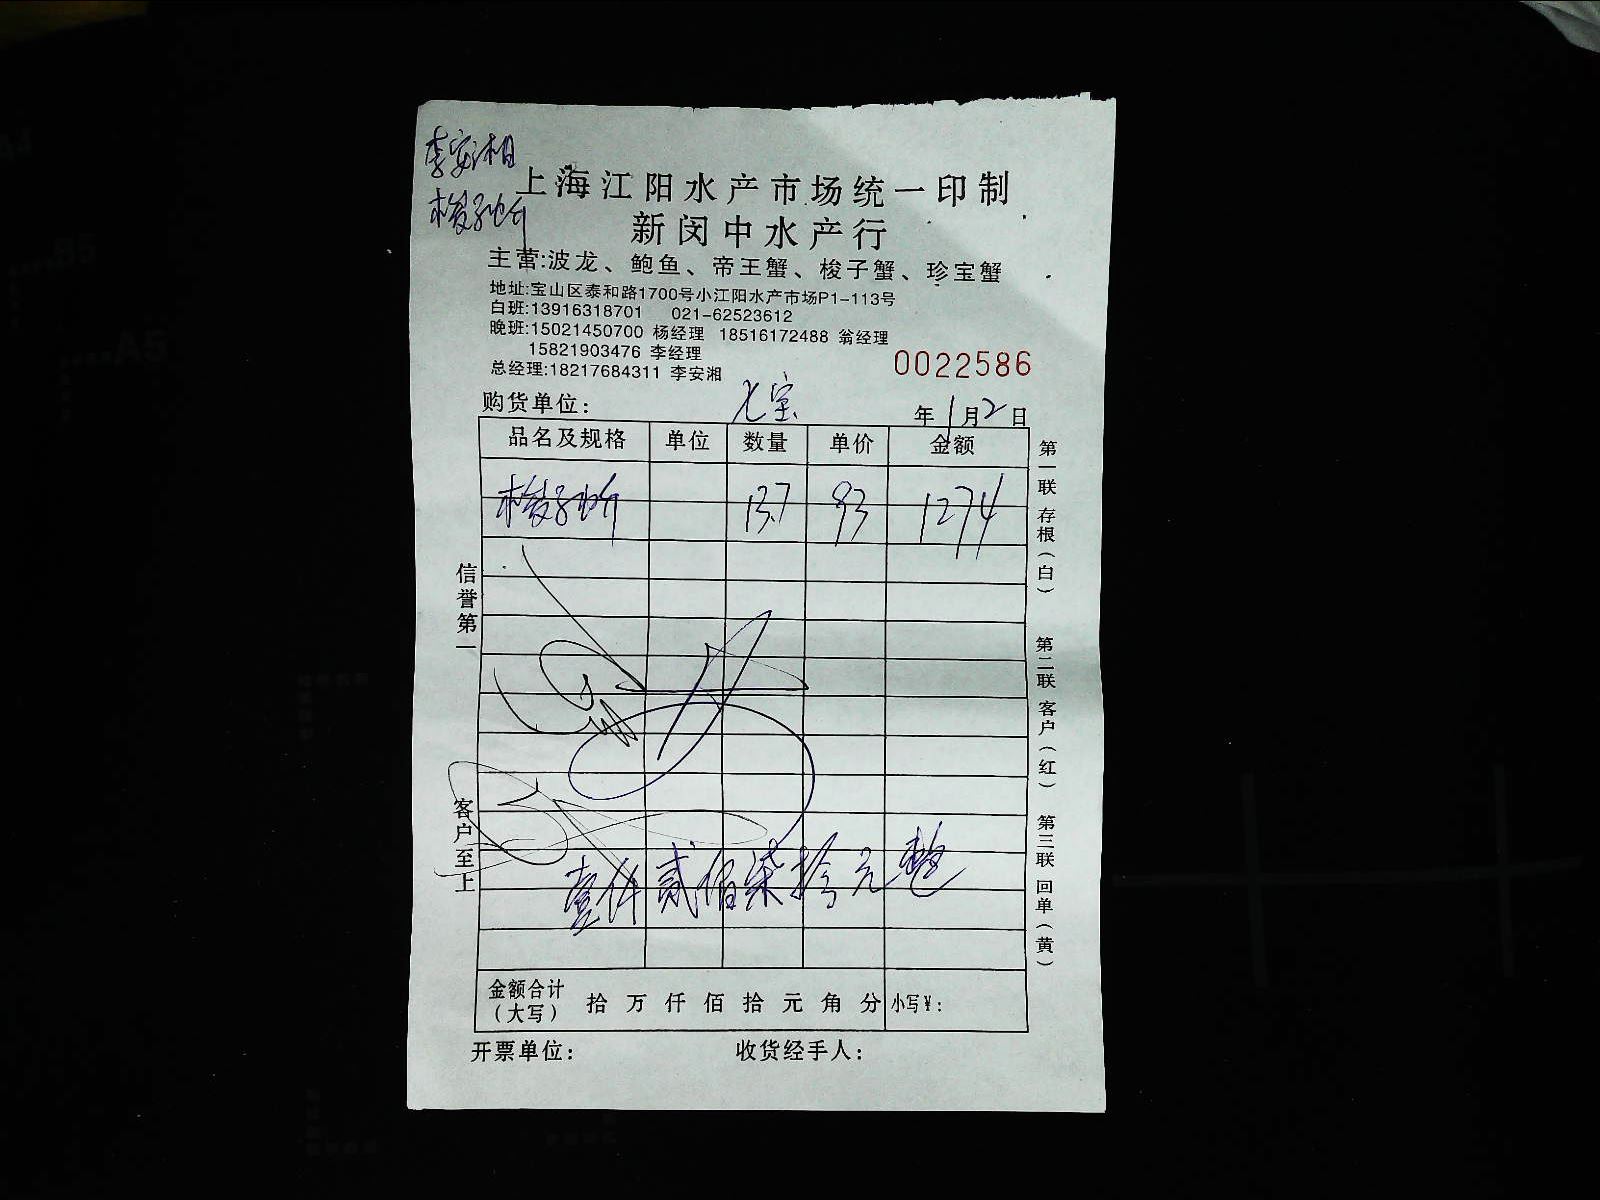 李安湘
梭子蚧
上海江阳水产市场统一印制
新闵中水产行
主营:波龙、鲍鱼、帝王蟹、梭子蟹、珍宝蟹
地址:宝山区泰和路1700号小江阳水产市场P1-113号
白班:13916318701 021-62523612
晚班:15021450700 杨经理 18516172488 翁经理
15821903476 李经理
总经理:18217684311 李安湘
0022586
购货单位: 七宝 年1月2日
品名及规格 单位 数量 单价 金额
梭子蚧 13.7 93 1274
壹仟贰佰柒拾元整
金额合计(大写) 拾万仟佰拾元角分 小写¥:
开票单位: 收货经手人:
信誉第一
客户至上
第一联存根(白)
第二联客户(红)
第三联回单(黄)